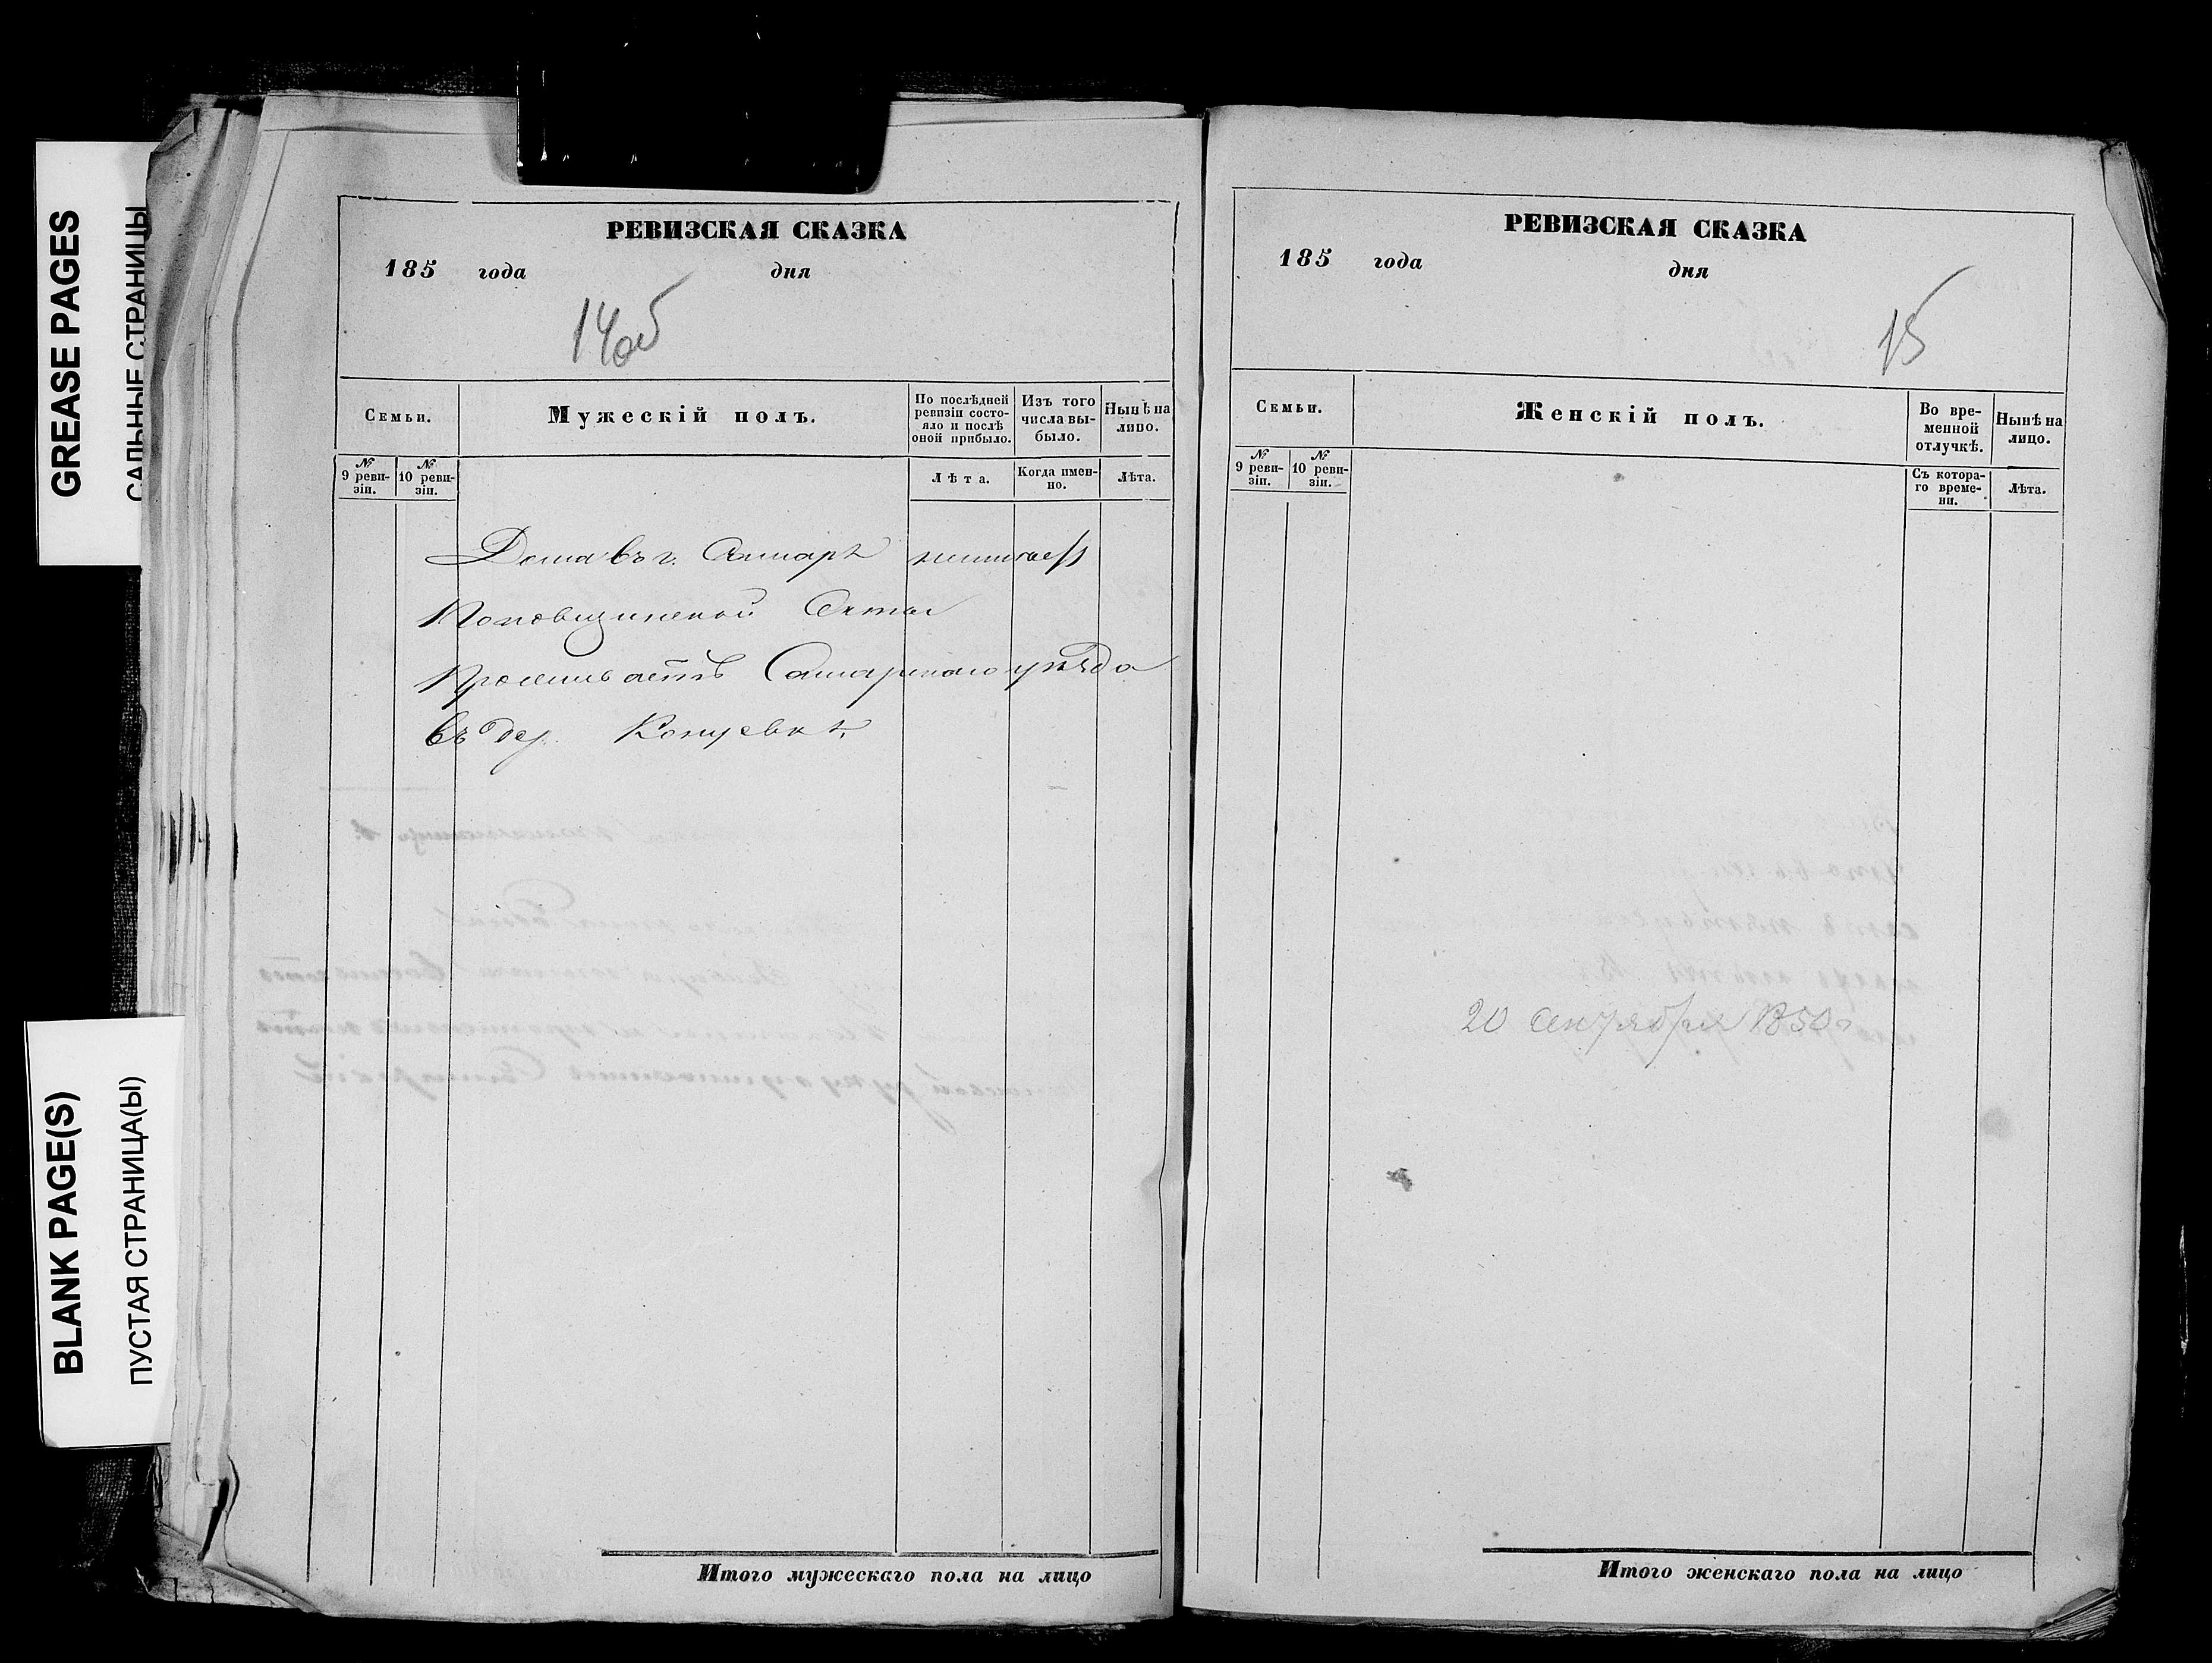 GREASE PAGES
САЛЬНЫЕ СТРАНИЦЫ
BLANK PAGE(S)
ПУСТАЯ СТРАНИЦА(Ы)
РЕВИЗСКАЯ СКАЗКА
185 года дня
14об
Семьи.
Мужескій полъ.
По послѣдней ревизіи состояло и послѣ оной прибыло.
Изъ того числа выбыло.
Нынѣ на лицо.
№ 9 ревизіи.
№ 10 ревизіи.
Лѣта.
Когда именно.
Лѣта.
Дома въ г. Самарѣ неимѣетъ
Поповщинской Секты
Проживаетъ Самарскаго уѣзда
въ дер.
Итого мужескаго пола на лицо
РЕВИЗСКАЯ СКАЗКА
185 года дня
15
Семьи.
Женскій полъ.
Во временной отлучкѣ.
Нынѣ на лицо.
№ 9 ревизіи.
№ 10 ревизіи.
Съ котораго времени.
Лѣта.
20 сентября 1850 г
Итого женскаго пола на лицо